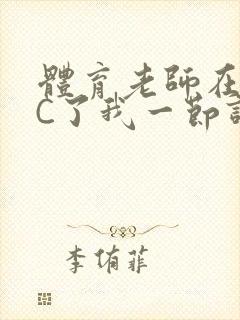 體育老師在
C了我一節
李侑菲